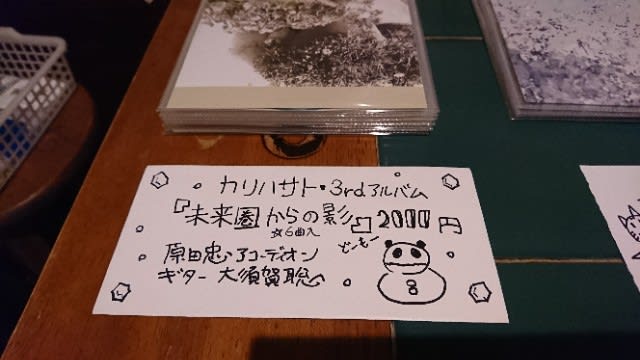 カリハサト・3rdアルバム
『未来圏からの影』2000円
全6曲入
どーもー
原田忠 アコーディオン
ギター 大須賀聡
8